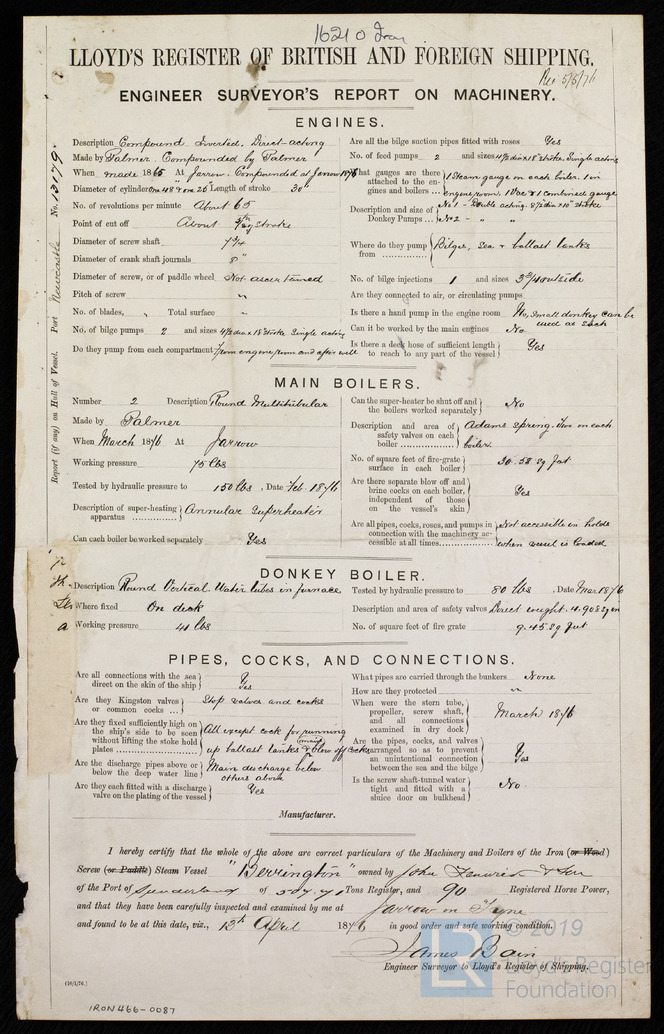 1621 0 Iron
LLOYD'S REGISTER OF BRITISH AND FOREIGN SHIPPING.
Rec 5/5/76
ENGINEER SURVEYOR'S REPORT ON MACHINERY.
Report (if any) on Hull of Vessel. Port Newcastle No. 13179.
ENGINES.
Description Compound Inverted, Direct acting
Made by Palmer. Compounded by Palmer
When made 1865 At Jarrow. Compounded at Jarrow 1876
Diameter of cylinders one 48" & one 26" Length of stroke 30"
No. of revolutions per minute About 65
Point of cut off About stroke
Diameter of screw shaft 7 3/4
Diameter of crank shaft journals 8"
Diameter of screw, or of paddle wheel Not ascertained
Pitch of screw "
No. of blades, " Total surface "
No. of bilge pumps 2 and sizes 4 1/2 dia x 18" stroke Single acting
Do they pump from each compartment From engine room and after well
Are all the bilge suction pipes fitted with roses Yes
No. of feed pumps 2 and sizes 4 1/2 dia x 18" stroke. Single acting
What gauges are there attached to the engines and boilers ... 1 Steam gauge on each boiler. 1 in engine room. 1 Vac & 1 combined gauge
Description and size of Donkey Pumps ... No 1 - Double acting. 8 1/2 dia x 10" stroke
No 2 - " "
Where do they pump from Bilges, sea & ballast tanks
No. of bilge injections 1 and sizes 3 3/4 outside
Are they connected to air, or circulating pumps "
Is there a hand pump in the engine room No, Small donkey can be used as such
Can it be worked by the main engines No
Is there a deck hose of sufficient length to reach to any part of the vessel Yes
MAIN BOILERS.
Number 2 Description Round Multitubular
Made by Palmer
When March 1876 At Jarrow
Working pressure 75 lbs
Tested by hydraulic pressure to 150 lbs, Date Feb. 1876
Description of super-heating apparatus Annular Superheater
Can each boiler be worked separately Yes
Can the super-heater be shut off and the boilers worked separately No
Description and area of safety valves on each boiler Adams spring. Two on each boiler.
No. of square feet of fire-grate surface in each boiler 30.58 sq feet.
Are there separate blow off and brine cocks on each boiler, independent of those on the vessel's skin Yes
Are all pipes, cocks, roses, and pumps in connection with the machinery accessible at all times Not accessible in holds when vessel is loaded
DONKEY BOILER.
Description Round Vertical. Water tubes in furnace
Where fixed On deck
Working pressure 41 lbs
Tested by hydraulic pressure to 80 lbs, Date Mar 1876
Description and area of safety valves Direct weight. 4.908 sq in
No. of square feet of fire grate 9.45 sq feet
PIPES, COCKS, AND CONNECTIONS.
Are all connections with the sea direct on the skin of the ship Yes
Are they Kingston valves or common cocks ... Stop valves and cocks
Are they fixed sufficiently high on the ship's side to be seen without lifting the stoke hold plates All except cock for running up ballast tanks & main blow off cocks
Are the discharge pipes above or below the deep water line Main discharge below others above
Are they each fitted with a discharge valve on the plating of the vessel Yes
What pipes are carried through the bunkers None
How are they protected "
When were the stern tube, propeller, screw shaft, and all connections examined in dry dock March 1876
Are the pipes, cocks, and valves arranged so as to prevent an unintentional connection between the sea and the bilge Yes
Is the screw shaft-tunnel water tight and fitted with a sluice door on bulkhead No.
Manufacturer.
I hereby certify that the whole of the above are correct particulars of the Machinery and Boilers of the Iron (or Wood)
Screw (or Paddle) Steam Vessel "Berrington" owned by John Fenwick & Son
of the Port of Sunderland of Tons Register, and 90 Registered Horse Power,
and that they have been carefully inspected and examined by me at Jarrow on Tyne
and found to be at this date, viz., 13th April 1876 in good order and safe working condition.
James Bain
Engineer Surveyor to Lloyd's Register of Shipping.
(10/1/76.)
IRON466-0087
© 2019
LR
Lloyd's Register
Foundation